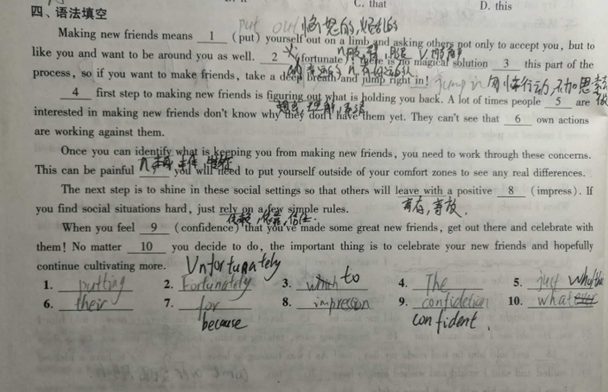 C. that D. this
四、语法填空
put out
Making new friends means 1 (put) yourself out on a limb and asking others not only to accept you, but to
like you and want to be around you as well. 2 (fortunate), there is no magical solution 3 this part of the
process, so if you want to make friends, take a deep breath and jump right in! jump in
4 first step to making new friends is figuring out what is holding you back. A lot of times people 5 are
interested in making new friends don't know why they don't have them yet. They can't see that 6 own actions
are working against them.
Once you can identify what is keeping you from making new friends, you need to work through these concerns.
This can be painful you will need to put yourself outside of your comfort zones to see any real differences.
The next step is to shine in these social settings so that others will leave with a positive 8 (impress). If
you find social situations hard, just rely on a few simple rules.
When you feel 9 (confidence) that you've made some great new friends, get out there and celebrate with
them! No matter 10 you decide to do, the important thing is to celebrate your new friends and hopefully
continue cultivating more. Unfortunately
1. putting 2. Fortunately 3. to 4. The 5. just who
6. their 7. for 8. impression 9. 10. whatever
because confident.